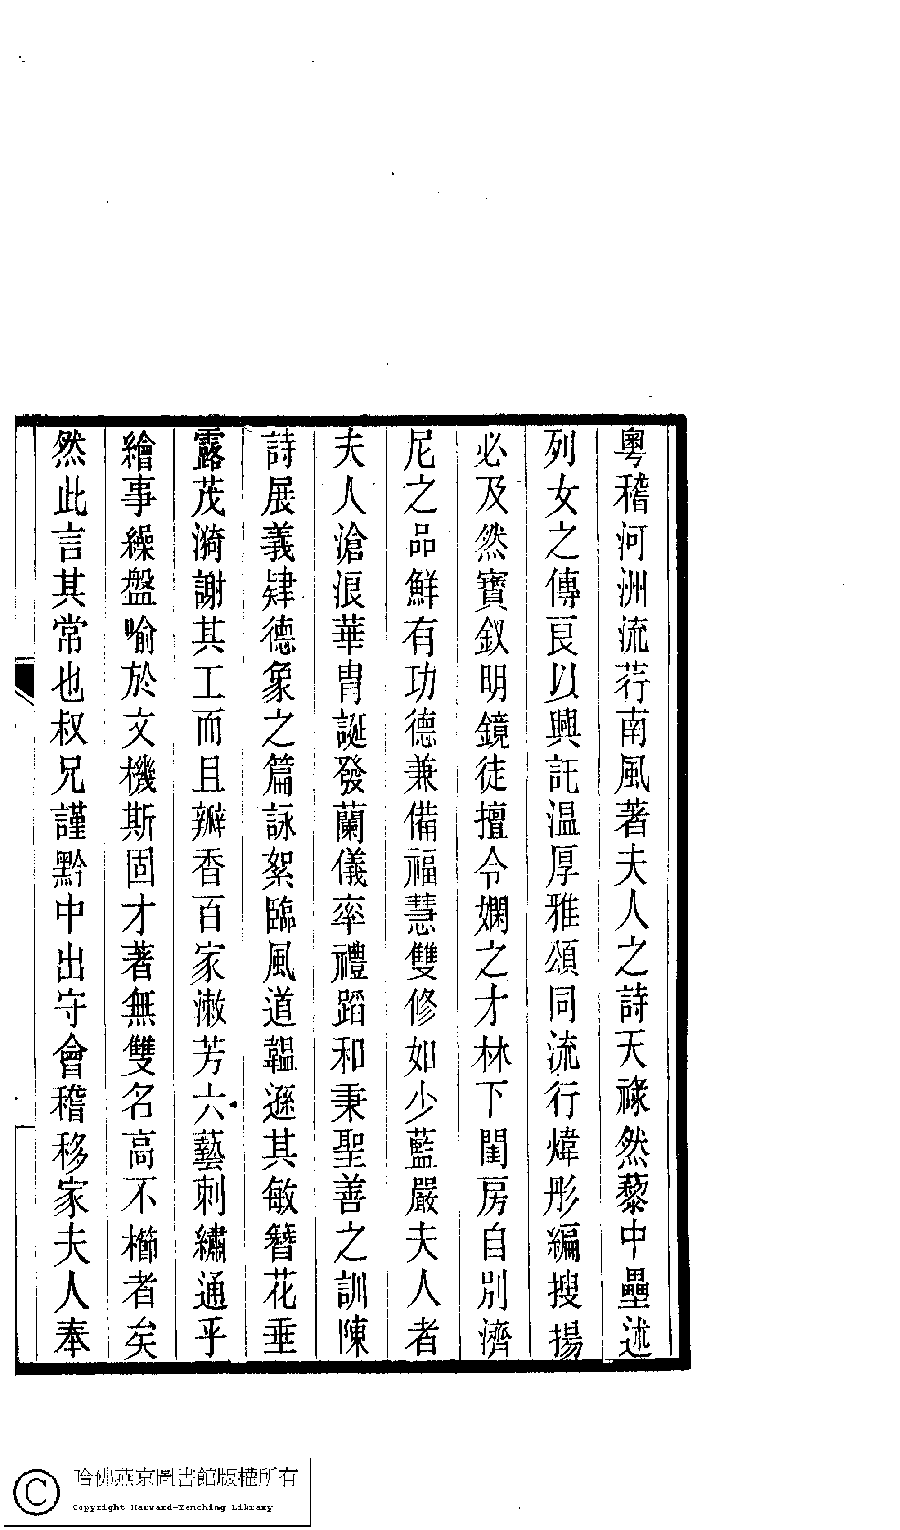 粵稽河洲流荇南風著夫人之詩天祿然藜中壘述
列女之傳良以興託温厚雅頌同流行煒彤編搜揚
必及然寳釵明鏡徒擅令嫻之才林下閨房自別濟
尼之品鮮有功德兼備福慧雙修如少藍嚴夫人者
夫人滄浪華胄誕發蘭儀率禮蹈和秉聖善之訓陳
詩展義肄德象之篇詠絮臨風道韞遜其敏簪花垂
露茂漪謝其工而且瓣香百家漱芳六藝刺繡通乎
繪事繰盤喻於文機斯固才著無雙名高不櫛者矣
然此言其常也叔兄謹黔中出守會稽移家夫人奉
哈佛燕京圖書館版權所有
Copyright Harvard-Yenching Library